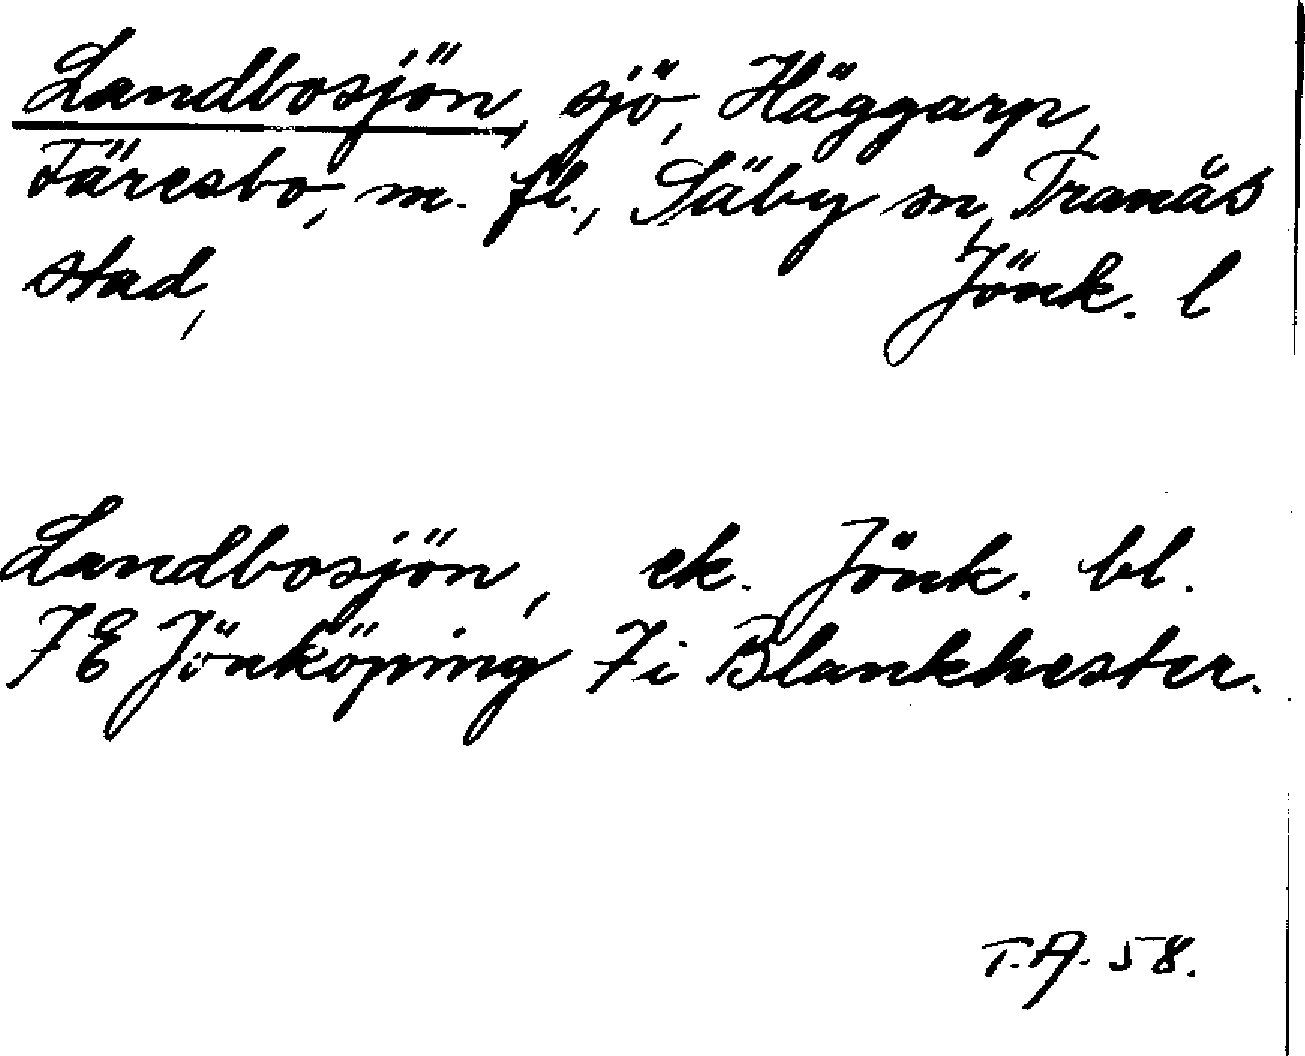 Landbosjön, sjö, Häggarp,
Färesbo, m. fl., Säby sn, Tranås
stad, Jönk. l
Landbosjön, ek. Jönk. bl.
7E Jönköping 7i Blankhester.
T.A. 58.